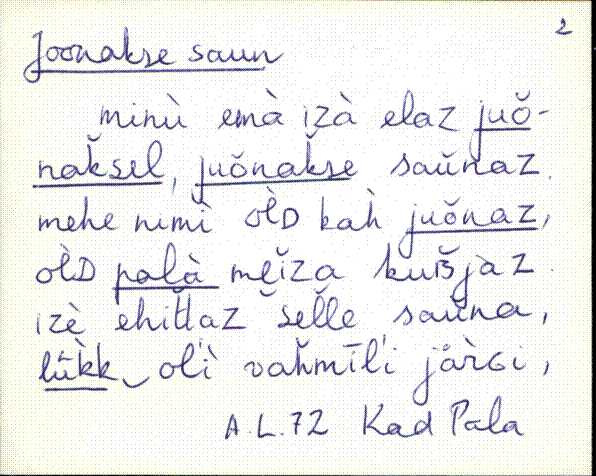 2
Joonakse saun
minù emà izà elaz juŏ-
nakšel, juŏnakše saŭnaz.
mehe nimì òlD kah̀ juŏnaz,
òlD palà mẹĭza kuʙ̆jaz.
izè ehitťaz šelle saŭna,
lǖk̀k ol'ì vah̆mīl'i jär̀ɢi,
A.L.72 Kad Pala